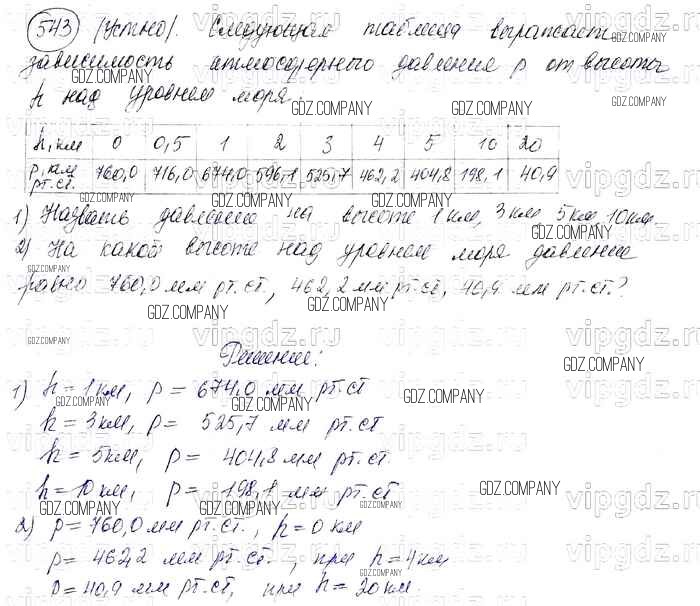 543 (Устно). Следующая таблица выражает
зависимость атмосферного давление р от высоты
h над уровнем моря.
h, км 0 0,5 1 2 3 4 5 10 20
р, км рт.ст. 760,0 716,0 674,0 596,1 525,7 462,2 404,8 198,1 40,9
1) Назвать давление на высоте 1 км, 3 км 5 км, 10 км.
2) На какой высоте над уровнем моря давление
равно 760,0 мм рт.ст., 462,2 мм рт.ст, 40,9 мм рт.ст.?
Решение:
1) h = 1 км, р = 674,0 мм рт.ст
h = 3 км, р = 525,7 мм рт.ст
h = 5 км, р = 404,8 мм рт.ст.
h = 10 км, р = 198,1 мм рт.ст
2) р = 760,0 мм рт.ст., h = 0 км
р = 462,2 мм рт.ст., при h = 4 км
р = 40,9 мм рт.ст, при h = 20 км.
GDZ.COMPANY
vipgdz.ru